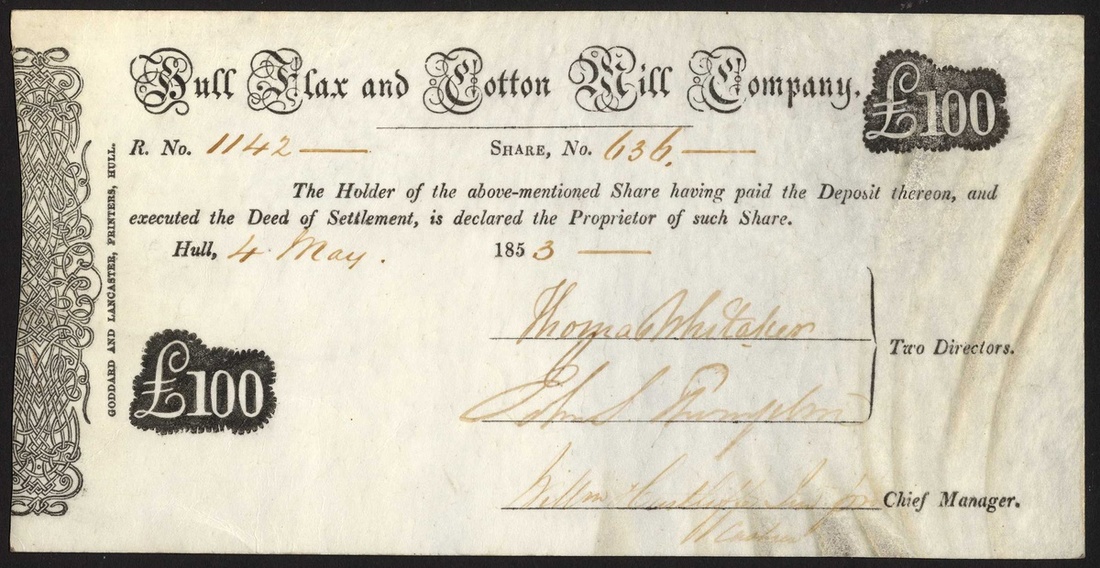 Hull Flax and Cotton Mill Company.
£100
R. No. 1142 —
SHARE, No. 636. —
The Holder of the above-mentioned Share having paid the Deposit thereon, and
executed the Deed of Settlement, is declared the Proprietor of such Share.
Hull, 4 May. 1853 —
Thomas Whitaker
John S Thompson
Two Directors.
£100
Willm
Chief Manager.
GODDARD AND LANCASTER, PRINTERS, HULL.